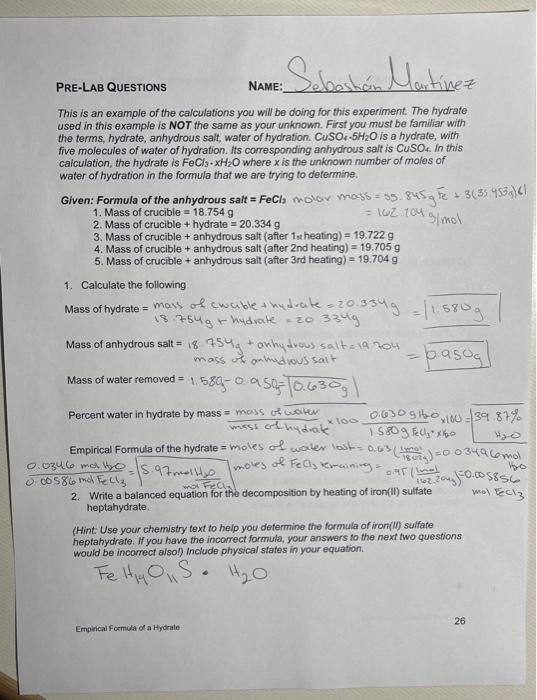 PRE-LAB QUESTIONS NAME: Sebastián Martinez
This is an example of the calculations you will be doing for this experiment. The hydrate
used in this example is NOT the same as your unknown. First you must be familiar with
the terms, hydrate, anhydrous salt, water of hydration. CuSO₄·5H₂O is a hydrate, with
five molecules of water of hydration. Its corresponding anhydrous salt is CuSO₄. In this
calculation, the hydrate is FeCl₃·xH₂O where x is the unknown number of moles of
water of hydration in the formula that we are trying to determine.
Given: Formula of the anhydrous salt = FeCl₃ molar mass = 55.845g Fe + 3(35.453g)Cl
= 162.204 g/mol
1. Mass of crucible = 18.754 g
2. Mass of crucible + hydrate = 20.334 g
3. Mass of crucible + anhydrous salt (after 1st heating) = 19.722 g
4. Mass of crucible + anhydrous salt (after 2nd heating) = 19.705 g
5. Mass of crucible + anhydrous salt (after 3rd heating) = 19.704 g
1. Calculate the following
Mass of hydrate = mass of crucible + hydrate = 20.334g
18.754g + hydrate = 20.334g = 1.580g
Mass of anhydrous salt = 18.754g + anhydrous salt = 19.704
mass of anhydrous salt = 0.950g
Mass of water removed = 1.580g - 0.950g = 0.630g
Percent water in hydrate by mass = mass of water / mass of hydrate × 100 0.630g H₂O / 1.580g FeCl₃·xH₂O × 100 = 39.87% H₂O
Empirical Formula of the hydrate = moles of water lost = 0.63 (1mol / 18.02g) = 0.03496 mol H₂O
0.0346 mol H₂O / 0.00586 mol FeCl₃ = 5.97 mol H₂O / mol FeCl₃ moles of FeCl₃ remaining = 0.95 (1mol / 162.204g) = 0.005856 mol FeCl₃
2. Write a balanced equation for the decomposition by heating of iron(II) sulfate
heptahydrate.
(Hint: Use your chemistry text to help you determine the formula of iron(II) sulfate
heptahydrate. If you have the incorrect formula, your answers to the next two questions
would be incorrect also!) Include physical states in your equation.
Fe H₁₄O₁₁S · H₂O
Empirical Formula of a Hydrate 26